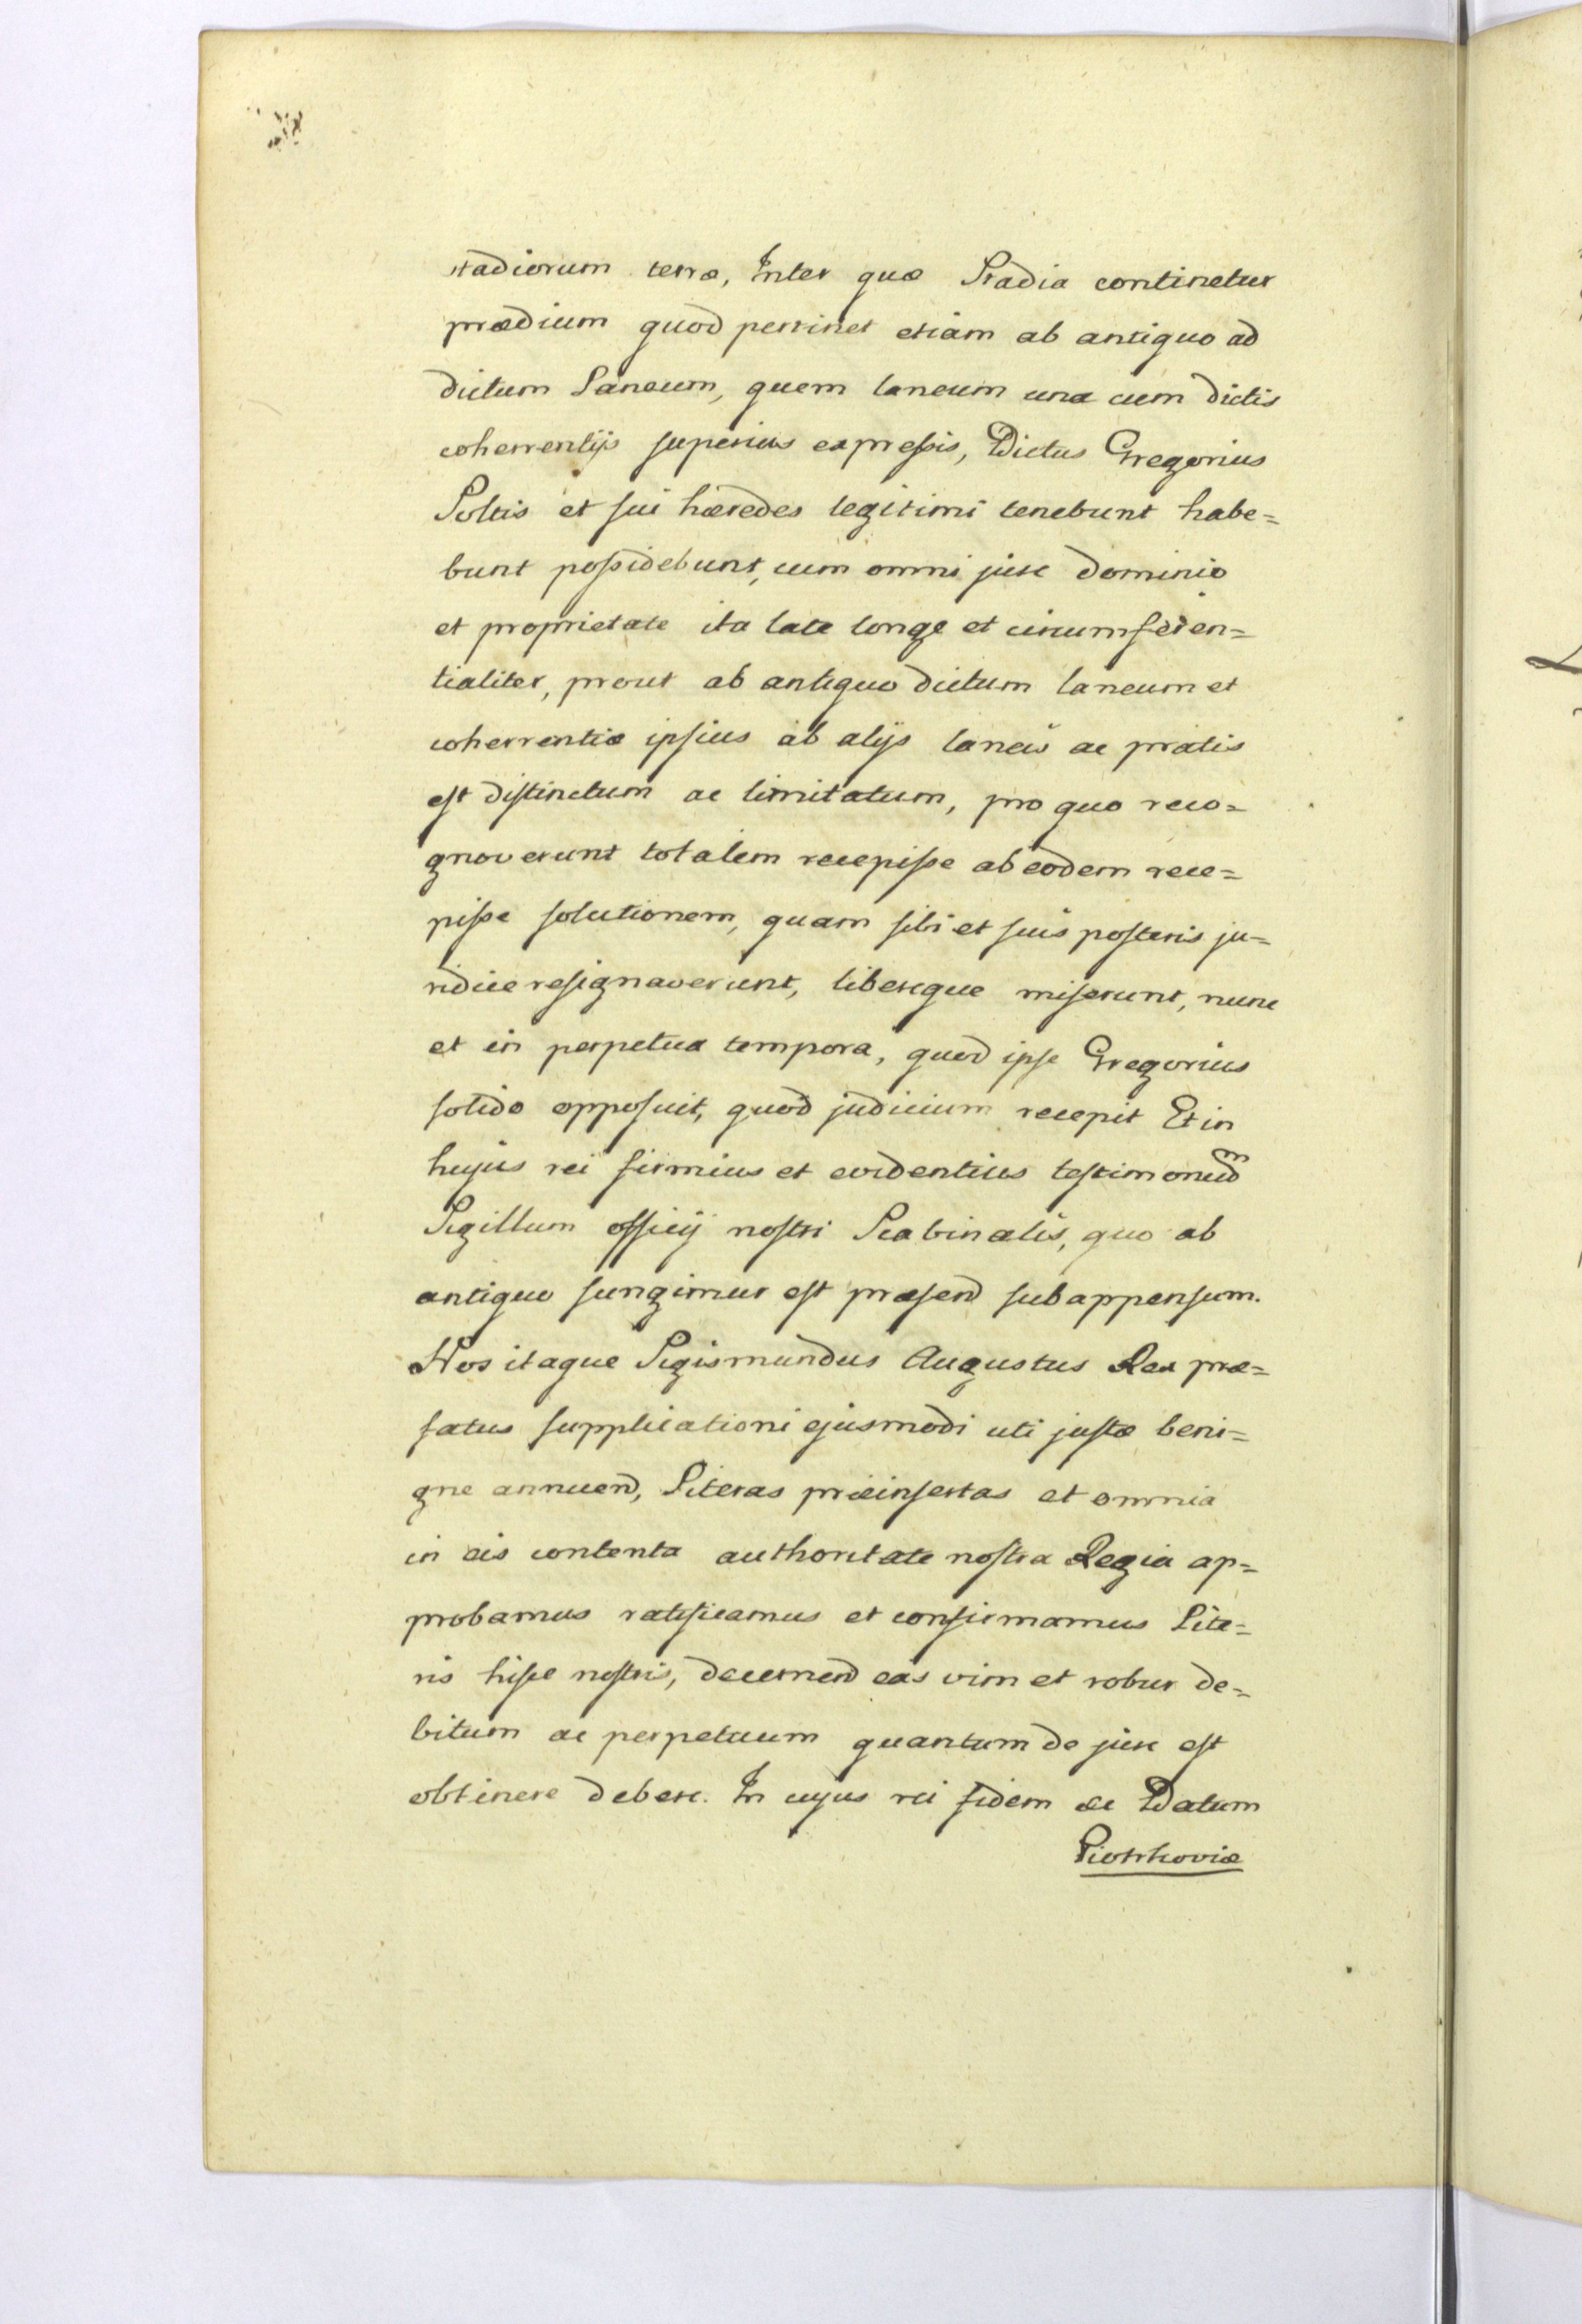 stadiorum terræ, Inter quæ Stadia continetur
prædium quod pertinet etiam ab antiquo ad
dictum Laneum, quem laneum una cum dictis
coherrentijs superius expressis, Dictus Gregorius
Soltis et sui hæredes legitimi tenebunt habe=
bunt possidebunt, cum omni jure dominio
et proprietate ita late longe et circumferen=
tialiter, prout ab antiquo dictum laneum et
coherrentiæ ipsius ab alijs laneis ac pratis
est distinctum ac limitatum, pro quo reco=
gnoverunt totalem recepisse ab eodem rece=
pisse solutionem, quam sibi et suis posteris ju=
ridice resignaverunt, libereque miserunt, nunc
et in perpetua tempora, quod ipse Gregorius
solido opposuit, quod judicium recepit Et in
hujus rei firmius et evidentius testimoniũ
Sigillum officij nostri Scabinalis, quo ab
antiquo fungimur est præsend subappensum.
Nos itaque Sigismundus Augustus Rex præ=
fatus supplicationi ejusmodi uti justæ beni=
gne annuend, Literas præinsertas et omnia
in eis contenta authoritate nostra Regia ap=
probamus ratificamus et confirmamus Lite=
ris hisce nostris, decernend eas vim et robur de=
bitum ac perpetuum quantum de jure est
obtinere debere. In cujus rei fidem &c Datum
Piotrkoviæ